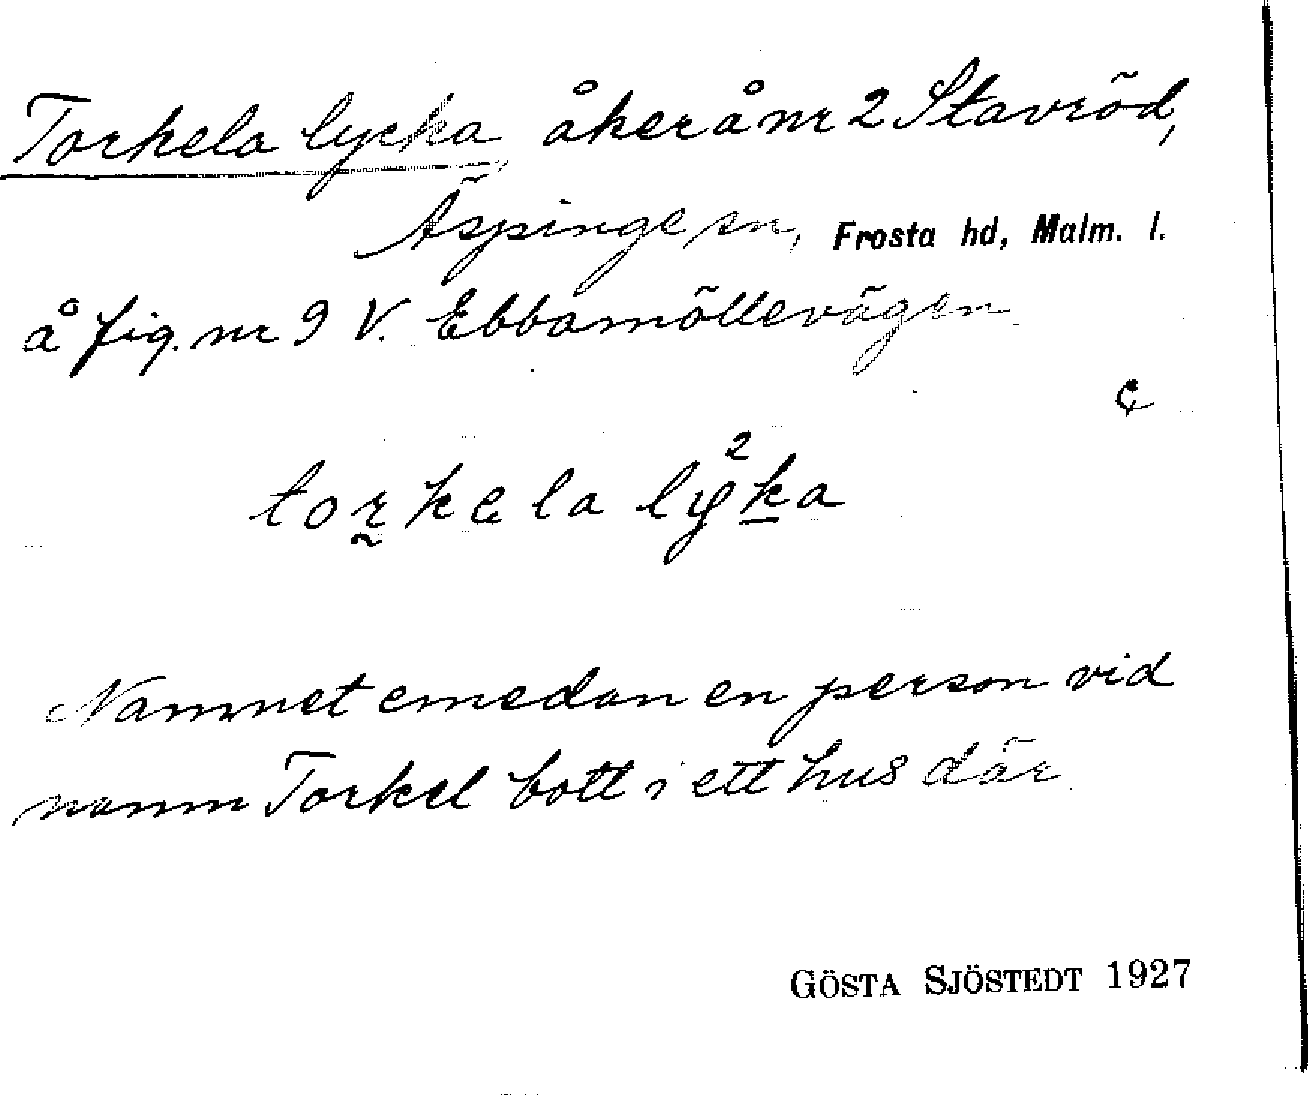 Torkela lycka, åker å nr 2 Stavröd,
Äspinge sn, Frosta hd, Malm. l.
å fig. nr 9 V. Ebbamöllevägen
torkela ly²ka
Namnet emedan en person vid
namn Torkel bott i ett hus där.
GÖSTA SJÖSTEDT 1927